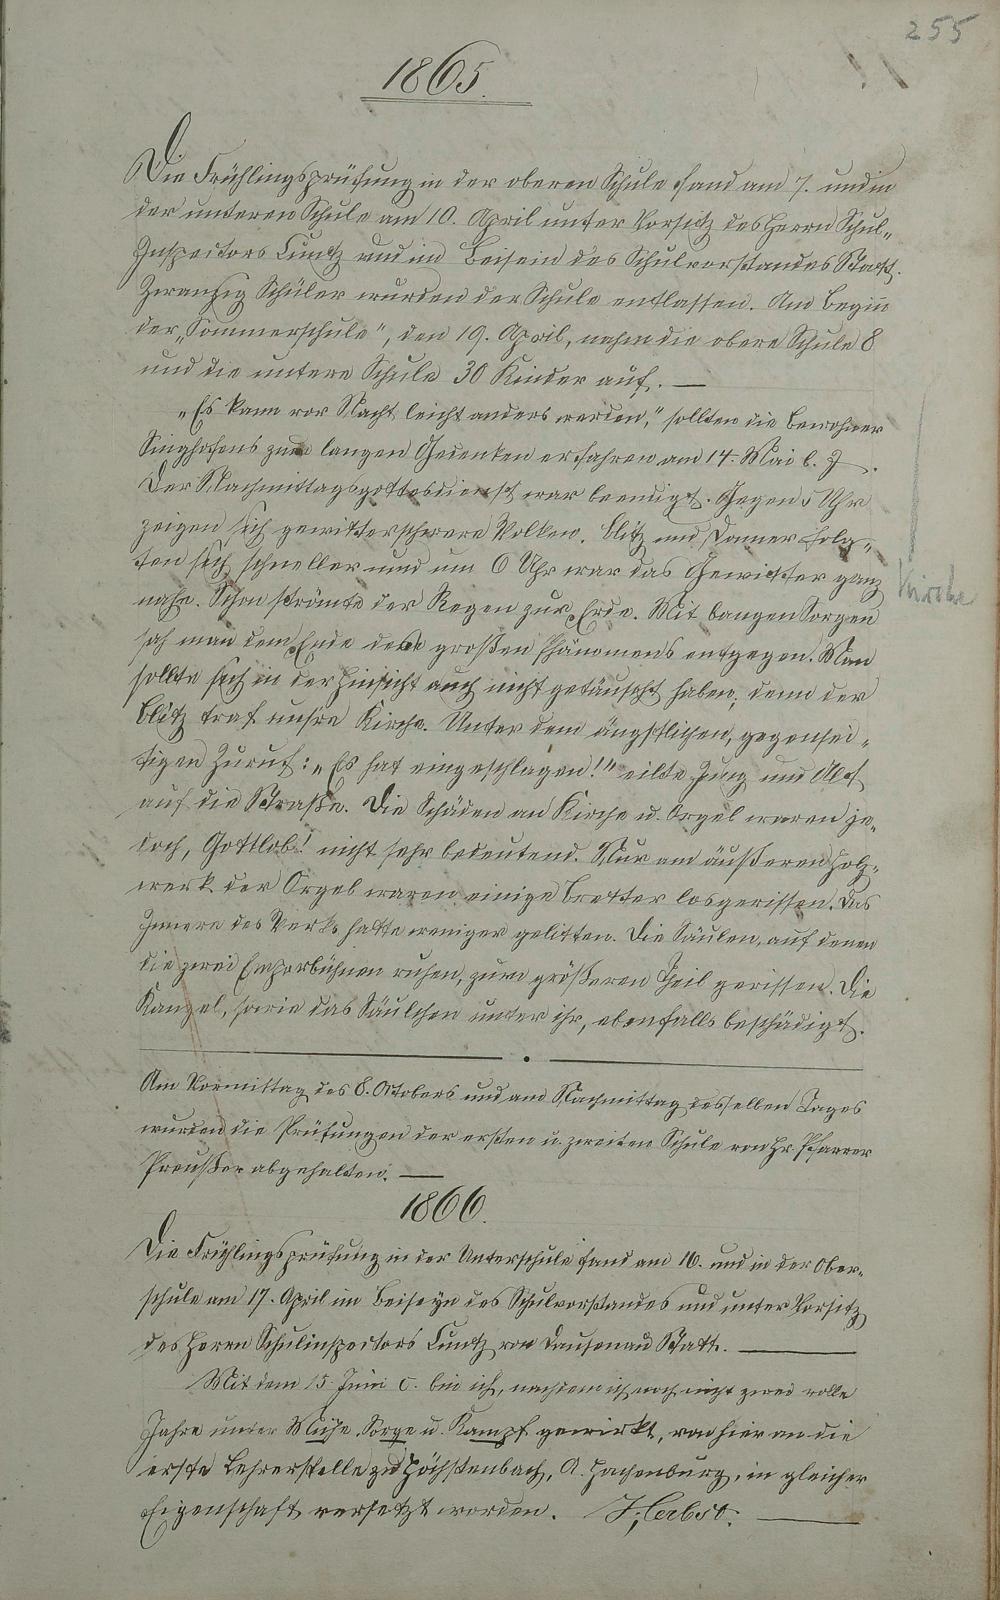 255
1865.
Die Frühlingsprüfung in der oberen Schule fand am 7. und in
der unteren Schule am 10. April unter Vorsitz des Herrn Schul-
Inspectors Cuntz und im Beisein des Schulvorstandes Statt.
Zwanzig Schüler wurden der Schule entlassen. Am Beginn
der „Sommerschule", den 19. April, nahm die obere Schule 8
und die untere Schule 30 Kinder auf. —
„Es kann vor Nacht leicht anders werden," sollten die Bewohner
Singhofens zum langen Gedenken erfahren am 14. Mai l. J.
Der Nachmittagsgottesdienst war beendigt. Gegen 5 Uhr
zeigen sich gewitterschwere Wolken. Blitz und Donner folg-
ten sich schneller und um 6 Uhr war das Gewitter ganz
nahe. Schon strömte der Regen zur Erde. Mit bangen Sorgen
sah man dem Ende des großen Phänomens entgegen. Man
sollte sich in der Hinsicht auch nicht getäuscht haben; denn der
Blitz traf unsre Kirche. Unter dem ängstlichen, gegensei-
tigen Zuruf: „Es hat eingeschlagen!" eilte Jung und Alt
auf die Straße. Die Schäden an Kirche u. Orgel waren je-
doch, Gottlob! nicht sehr bedeutend. Nur am äußeren Holz-
werk der Orgel waren einige Bretter losgerissen. Das
Innere des Werks hatte weniger gelitten. Die Säulen, auf denen
die zwei Emporbühnen ruhen, zum größeren Theil gerissen. Die
Kanzel, sowie das Säulchen unter ihr, ebenfalls beschädigt.
Kirche
Am Vormittag des 8. Octobers und am Nachmittag desselben Tages
wurden die Prüfungen der ersten u. zweiten Schule von Hr. Pfarrer
Preußer abgehalten. —
1866.
Die Frühlingsprüfung in der Unterschule fand am 16. und in der Ober-
schule am 17. April im Beiseyn des Schulvorstandes und unter Vorsitz
des Herrn Schulinspectors Cuntz von Dausenau Statt. —
Mit dem 15. Juni c. bin ich, nachdem ich noch nicht zwei volle
Jahre unter Mühe, Sorge u. Kampf gewirkt, von hier an die
erste Lehrerstelle zu Höchstenbach, A. Hachenburg, in gleicher
Eigenschaft versetzt worden. Herbst. —